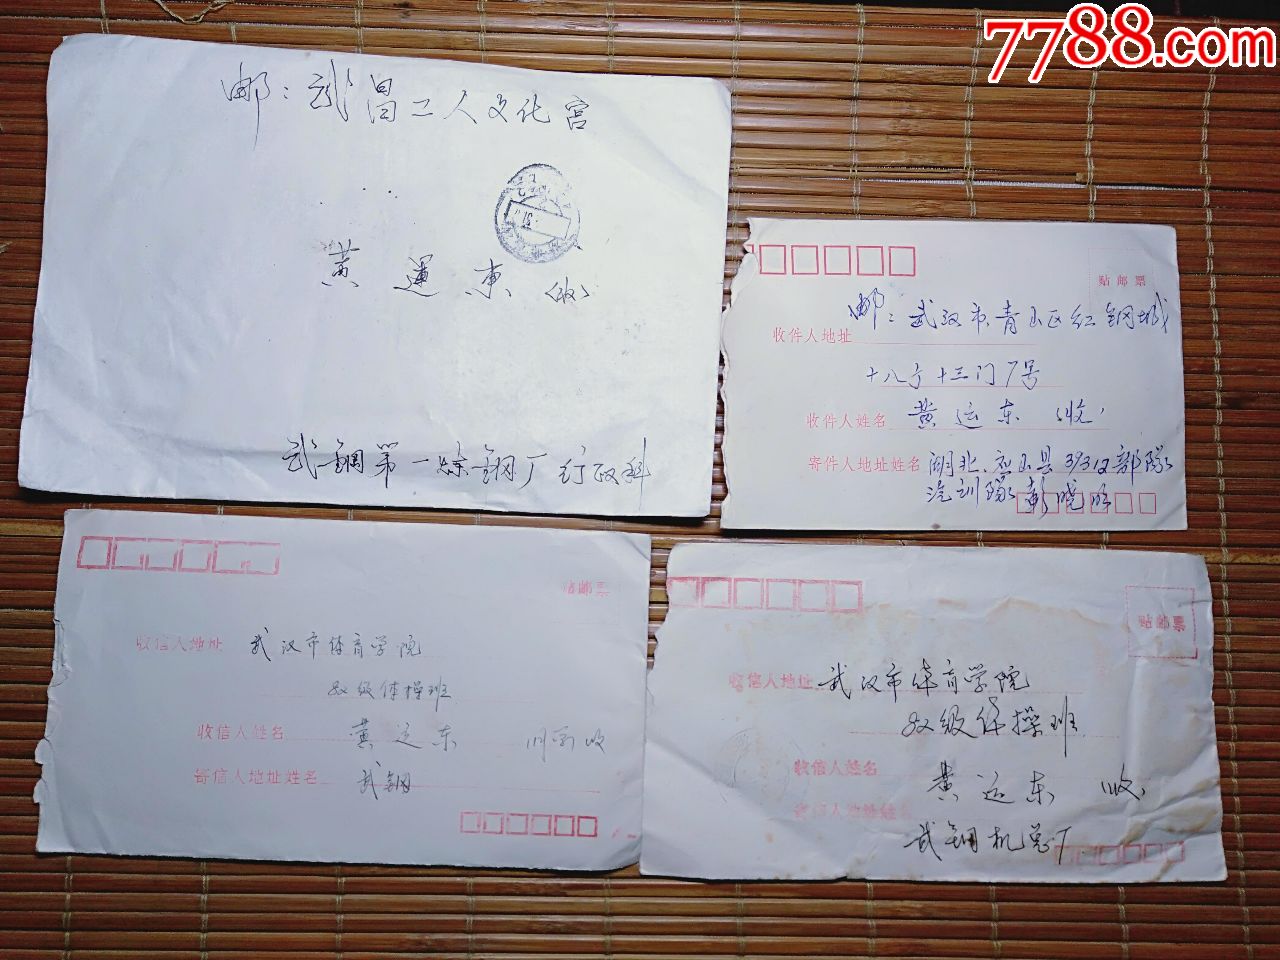 7788.com
邮：武昌工人文化宫
黄运东(收)
武钢第一炼钢厂行政科
贴邮票
邮：武汉市青山区红钢城
收件人地址
十八 十三门7号
收件人姓名 黄运东 收
寄件人地址姓名 湖北应山县 部队
汽训队 彭晓
贴邮票
收信人地址 武汉市体育学院
82级体操班
收信人姓名 黄运东 同学收
寄信人地址姓名 武钢
贴邮票
收信人地址 武汉市体育学院
82级体操班
收信人姓名
黄运东 收
寄信人地址姓名
武钢机总厂